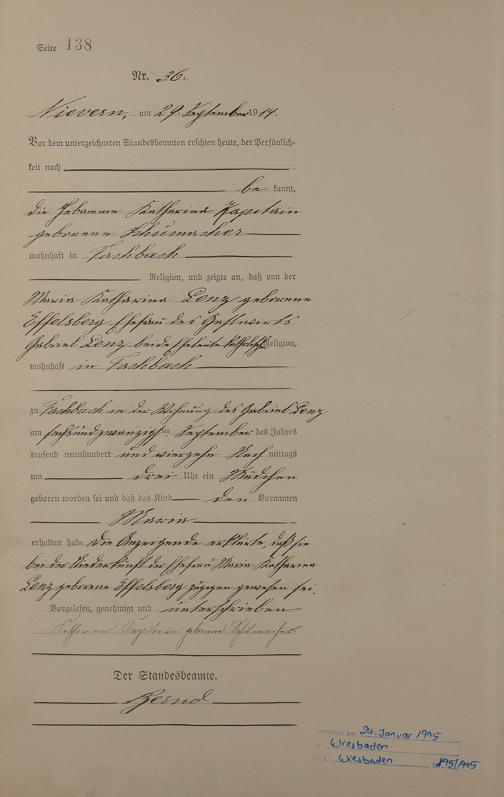 Seite 138
Nr. 36.
Nievern, am 29. September 1914.
Vor dem unterzeichneten Standesbeamten erschien heute, der Persönlich-
keit nach
be kannt,
die Hebamme Katharina Kapitain
geborene Schumacher
wohnhaft in Fachbach
Religion, und zeigte an, daß von der
Maria Katharina Lenz geborene
Effelsberg Ehefrau des Gastwirts
Gabriel Lenz beide Eheleute katholischer Religion,
wohnhaft in Fachbach
zu Fachbach in der Wohnung des Gabriel Lenz
am sechsundzwanzigsten September des Jahres
tausend neunhundert und vierzehn Nach mittags
um drei Uhr ein Mädchen
geboren worden sei und daß das Kind den Vornamen
Maria
erhalten habe. Die Anzeigende erklärte, daß sie
bei der Niederkunft der Ehefrau Maria Katharina
Lenz geborene Effelsberg zugegen gewesen sei.
Vorgelesen, genehmigt und unterschrieben
Katharina Kapitain geborene Schumacher
Der Standesbeamte.
24. Januar 1995
Wiesbaden
Wiesbaden 195/1995